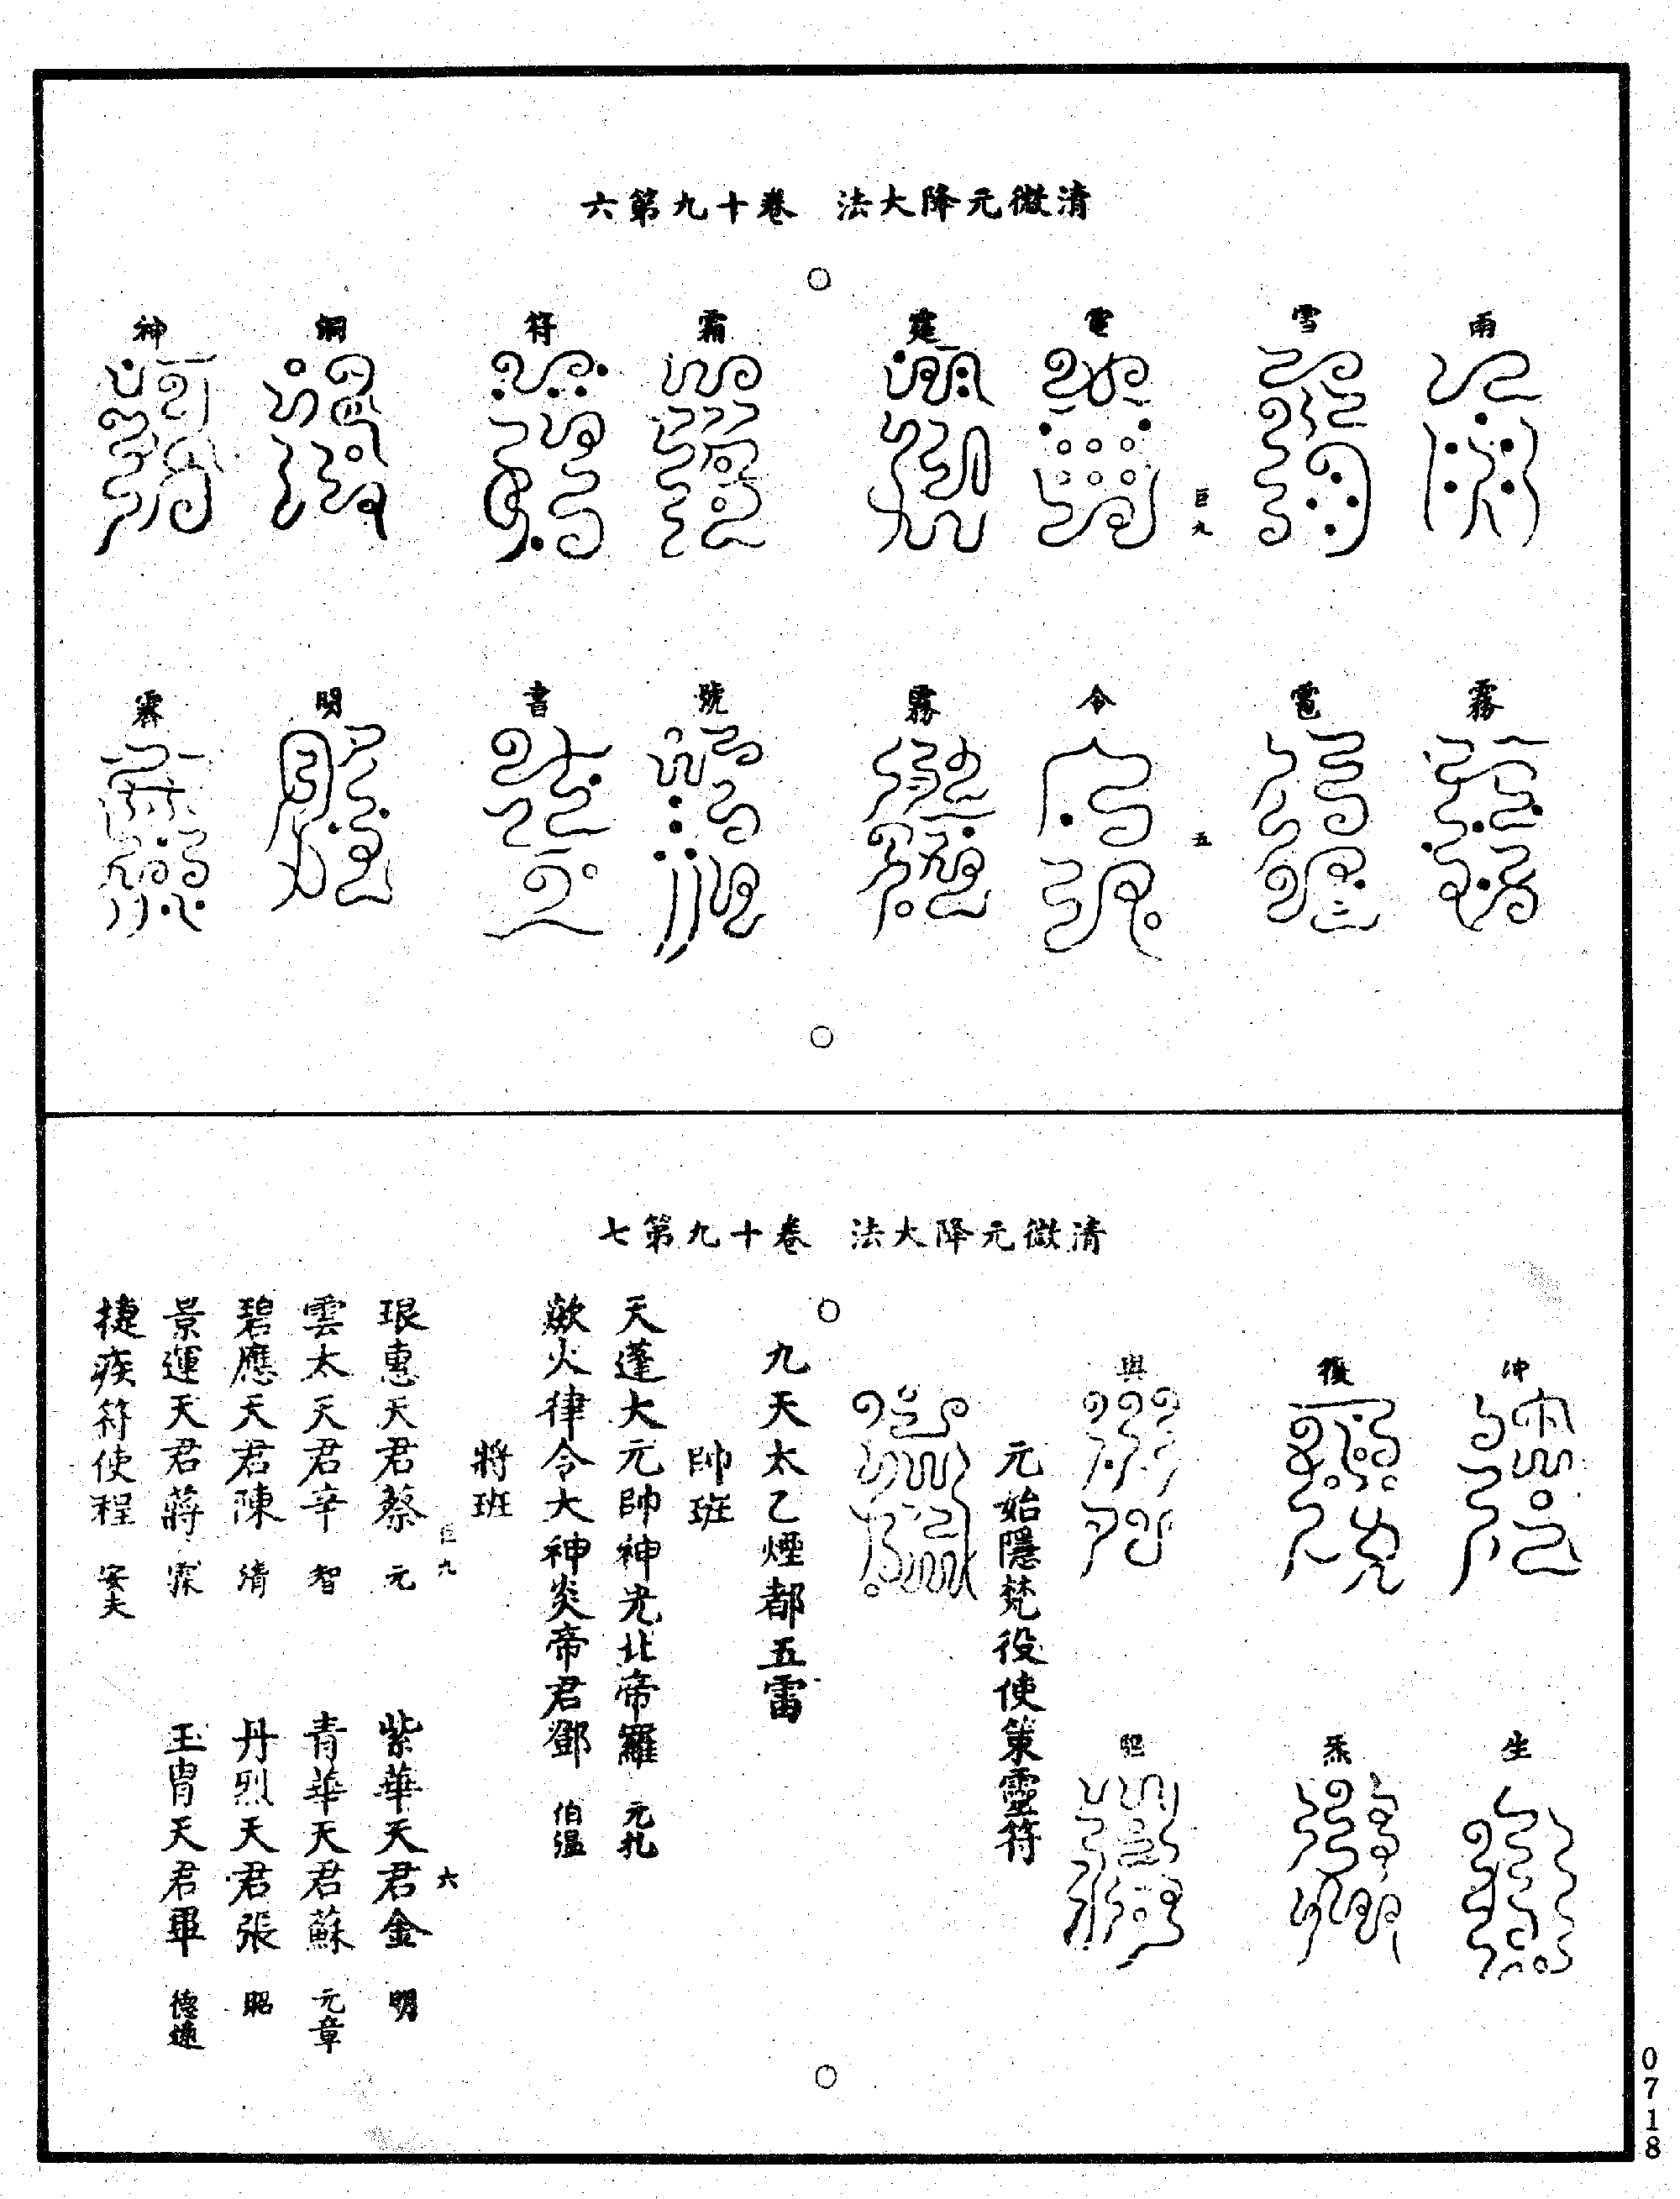 清微元降大法 卷十九第六
雨
霧
雪
雹
巨九
五
電
令
霆
霧
霜
號
符
書
綱
明
神
霽
清微元降大法 卷十九第七
沖
生
復
炁
與
昭
元始隱梵役使策靈符
九天太乙煙都五雷
帥班
天蓬大元帥神光北帝羅 元扎
歘火律令大神炎帝君鄧 伯温
將班
巨九
六
琅惠天君蔡 元
紫華天君金 明
雲太天君辛 智
青華天君蘇 元章
碧應天君陳 清
丹烈天君張 昭
景運天君蔣 霂
玉胄天君畢 德遠
捷疾符使程 安夫
0718